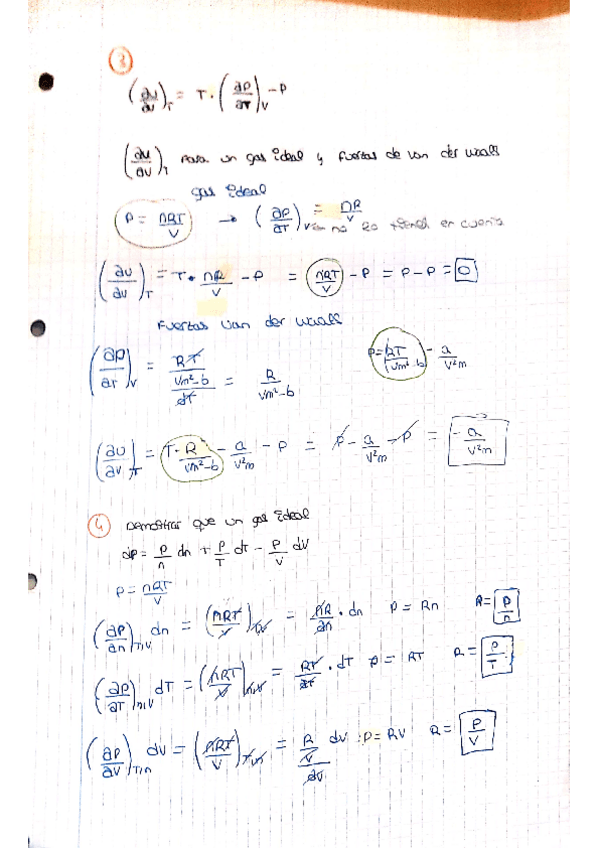 3
(∂U/∂V)_T = T · (∂P/∂T)_V - P
(∂U/∂V)_T para un gas ideal y fuerzas de van der waals
gas ideal
P = nRT/V → (∂P/∂T)_V = nR/V
no en cuenta
(∂U/∂V)_T = T · nR/V - P = nRT/V - P = P - P = 0
Fuerzas Van der waals
(∂P/∂T)_V = RT/(Vm²-b)/∂T = R/(Vm²-b) P = RT/(Vm²-b) - a/V²m
(∂U/∂V)_T = T·R/(Vm²-b) - a/V²m - P = P - a/V²m - P = -a/V²m
4 Demostrar que un gas ideal
dp = P/n dn + P/T dT - P/V dV
P = nRT/V
(∂P/∂n)_T,V dn = (nRT/V)_T,V = nR/∂n · dn P = Rn R = P/n
(∂P/∂T)_n,V dT = (nRT/V)_n,V = RT/∂T · dT P = RT R = P/T
(∂P/∂V)_T,n dV = (nRT/V)_T,n = R/V/∂V dV P = RV R = P/V